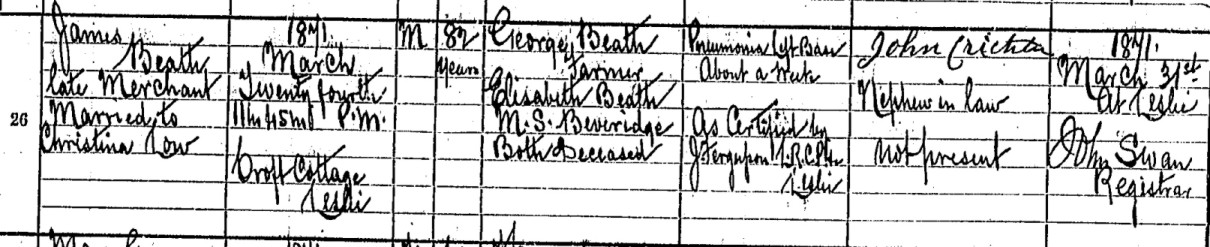 26
James
Beath
late Merchant
Married to
Christina Low
1871.
March
Twenty fourth
11h 45m P.M.
Croft Cottage
Leslie
M
82
years
George Beath
Farmer
Elisabeth Beath
M.S. Beveridge
Both Deceased
Pneumonia Left Base
About a Week
As Certified by
J Ferguson
Leslie
John Crichton
Nephew in law
Not present
1871.
March 31st
At Leslie
John Swan
Registrar